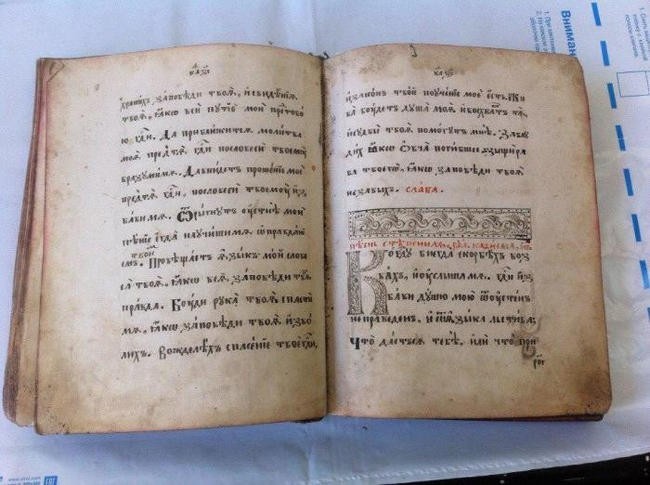 хранихъ заповѣди твоѧ, и свидѣнїѧ
твоѧ, ꙗкѡ вси путїе мои пред тобо
ю гди. Да приближитъсѧ молитва
моѧ пред тѧ гди, по словеси твоему
вразуми мѧ. Да внидетъ прошенїе мое
пред тѧ гди, по словеси твоему из
бави мѧ. Ѿрыгнутъ устнѣ мои
пѣнїе егда научиши мѧ ѡправданї
емъ твои. Провѣщаетъ ѧзыкъ мой слове
са твоѧ, ꙗкѡ всѧ заповѣди
правда. Буди рука твоѧ спасти
мѧ, ꙗкѡ заповѣди твоѧ изво
лихъ. Вожделѣхъ спасенїе твое гди,
и законъ твой поученїе мое есть. Жи
ва будетъ душа моѧ и восхвалитъ тѧ,
и судьбы твоѧ помогутъ мнѣ. Заблу
дихъ ꙗкѡ ѡвча погибшее, взыщи ра
ба твоего, ꙗкѡ заповѣди твоѧ
не забыхъ. слава.
Пѣснь степеннаѧ
Ко гду внегда скорбѣхъ воз
вахъ, и услыша мѧ. гди из
бави душю мою ѿ устенъ
неправеденъ, и ѿ ѧзыка льстива.
Что дастьсѧ тебѣ, или что при
Вниман